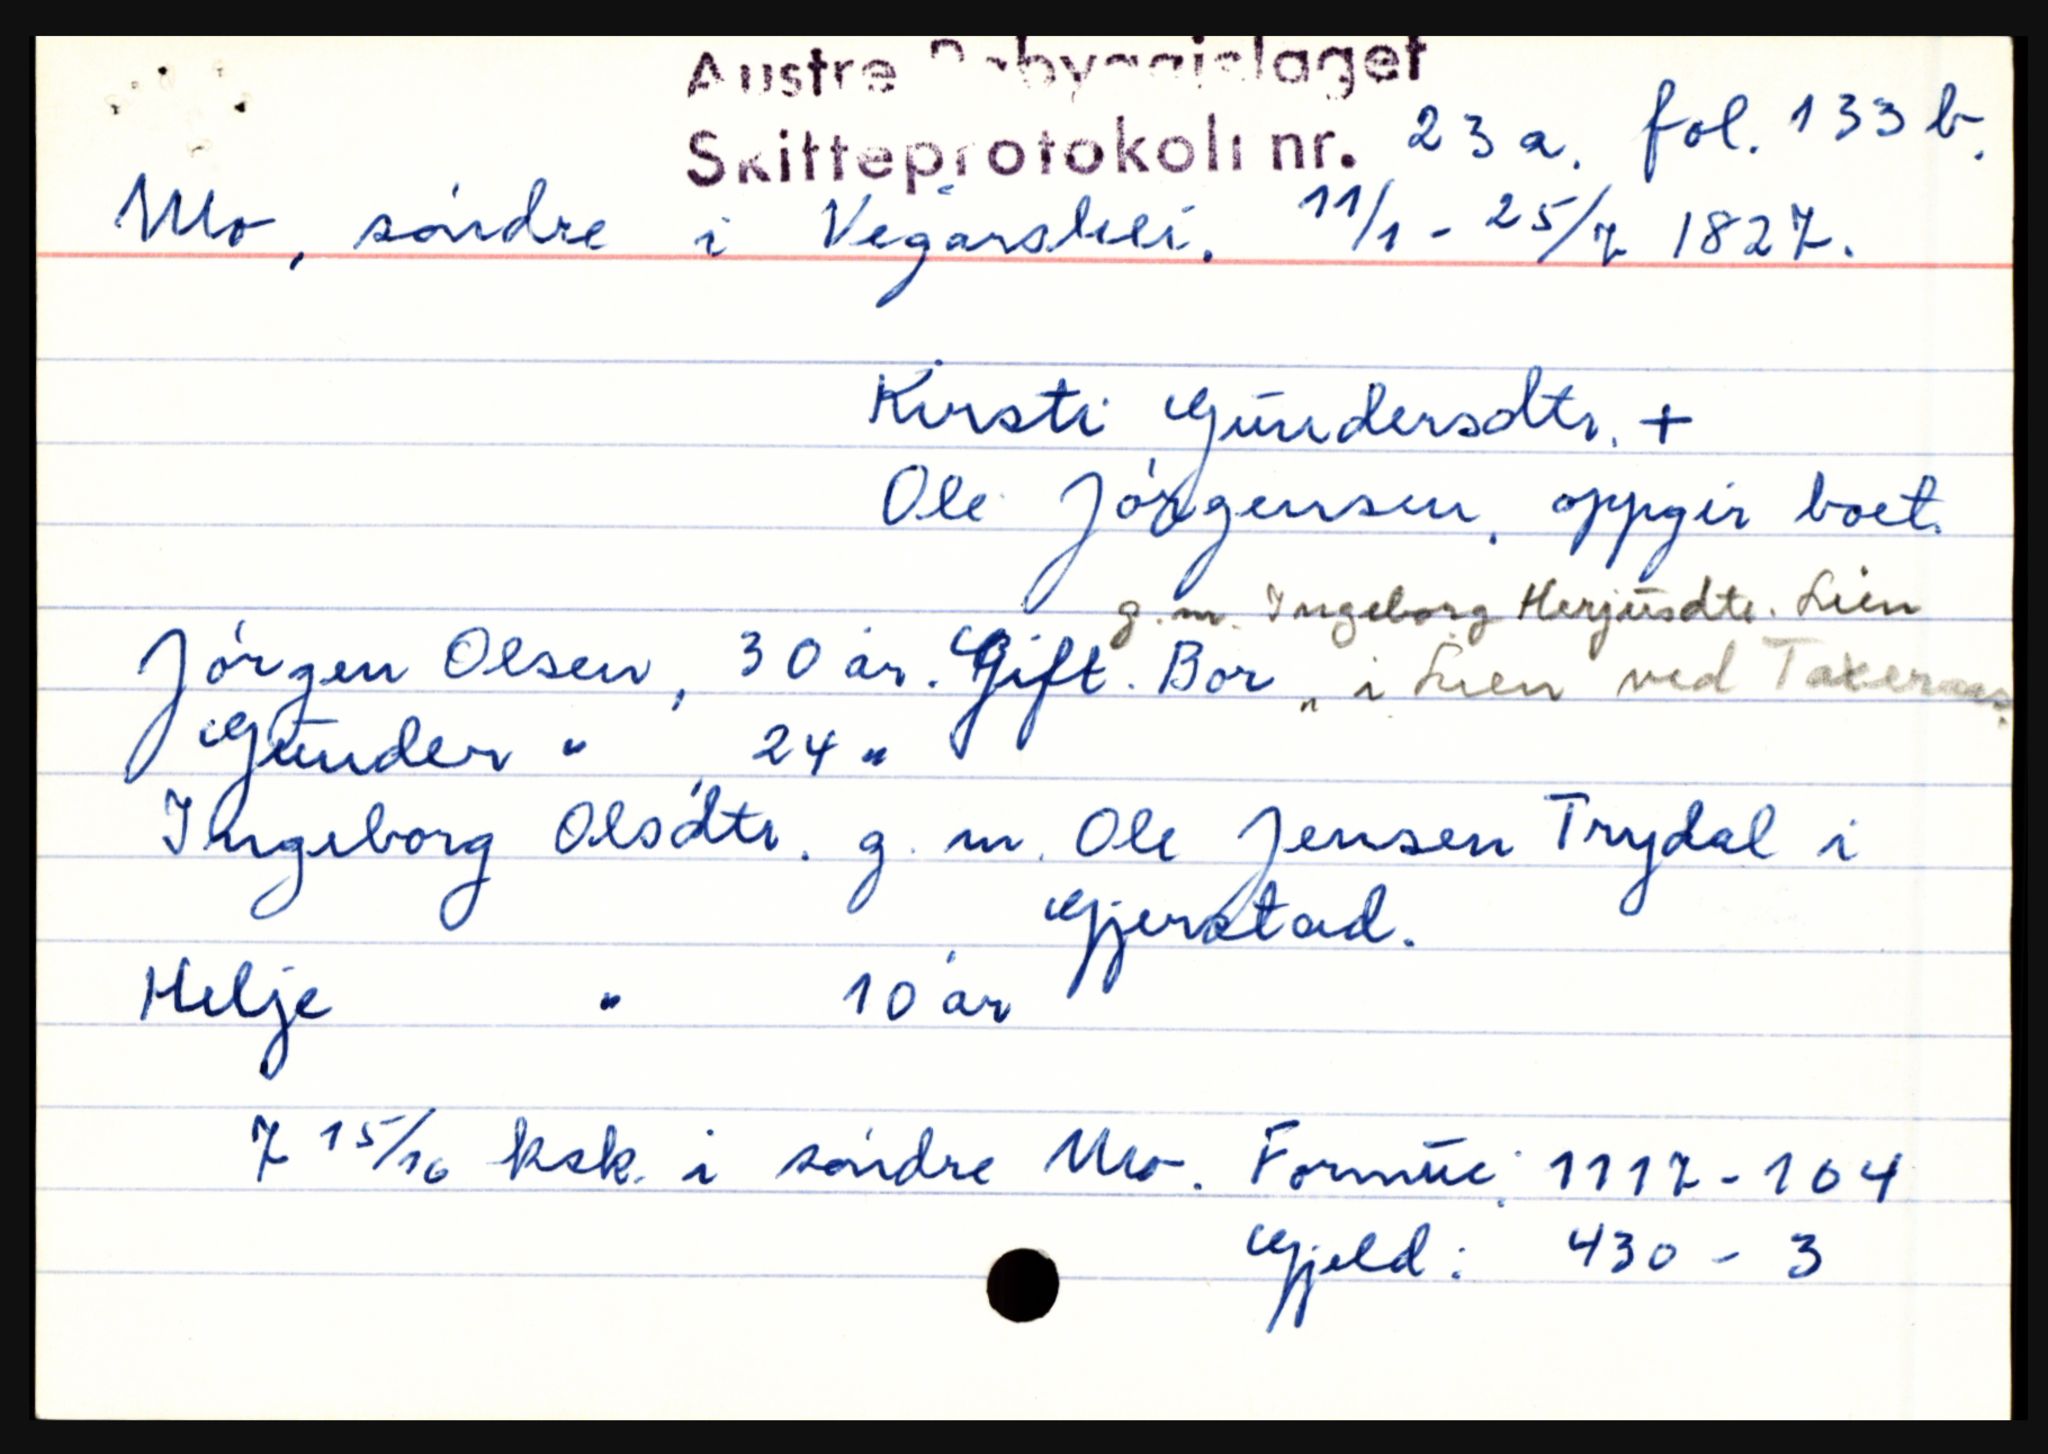 Austre Råbyggjelaget
Skifteprotokoll nr. 23 a. fol. 133 b.
Mo, søndre i Vegårshei. 11/1 - 25/7 1827.
Kirsti Gundersdtr. +
Ole Jörgensen, oppgir boet.
g. m. Ingeborg Herjusdtr. Lien
Jörgen Olsen, 30 år. Gift. Bor „ i Lien ved Takeraas.
Gunder " , 24 "
Ingeborg Olsdtr. g. m. Ole Jensen Trydal i
Gjerstad.
Helje " 10 år
7 15/16 ksk. i söndre Mo. Formue: 1117 - 104
Gjeld: 430 - 3